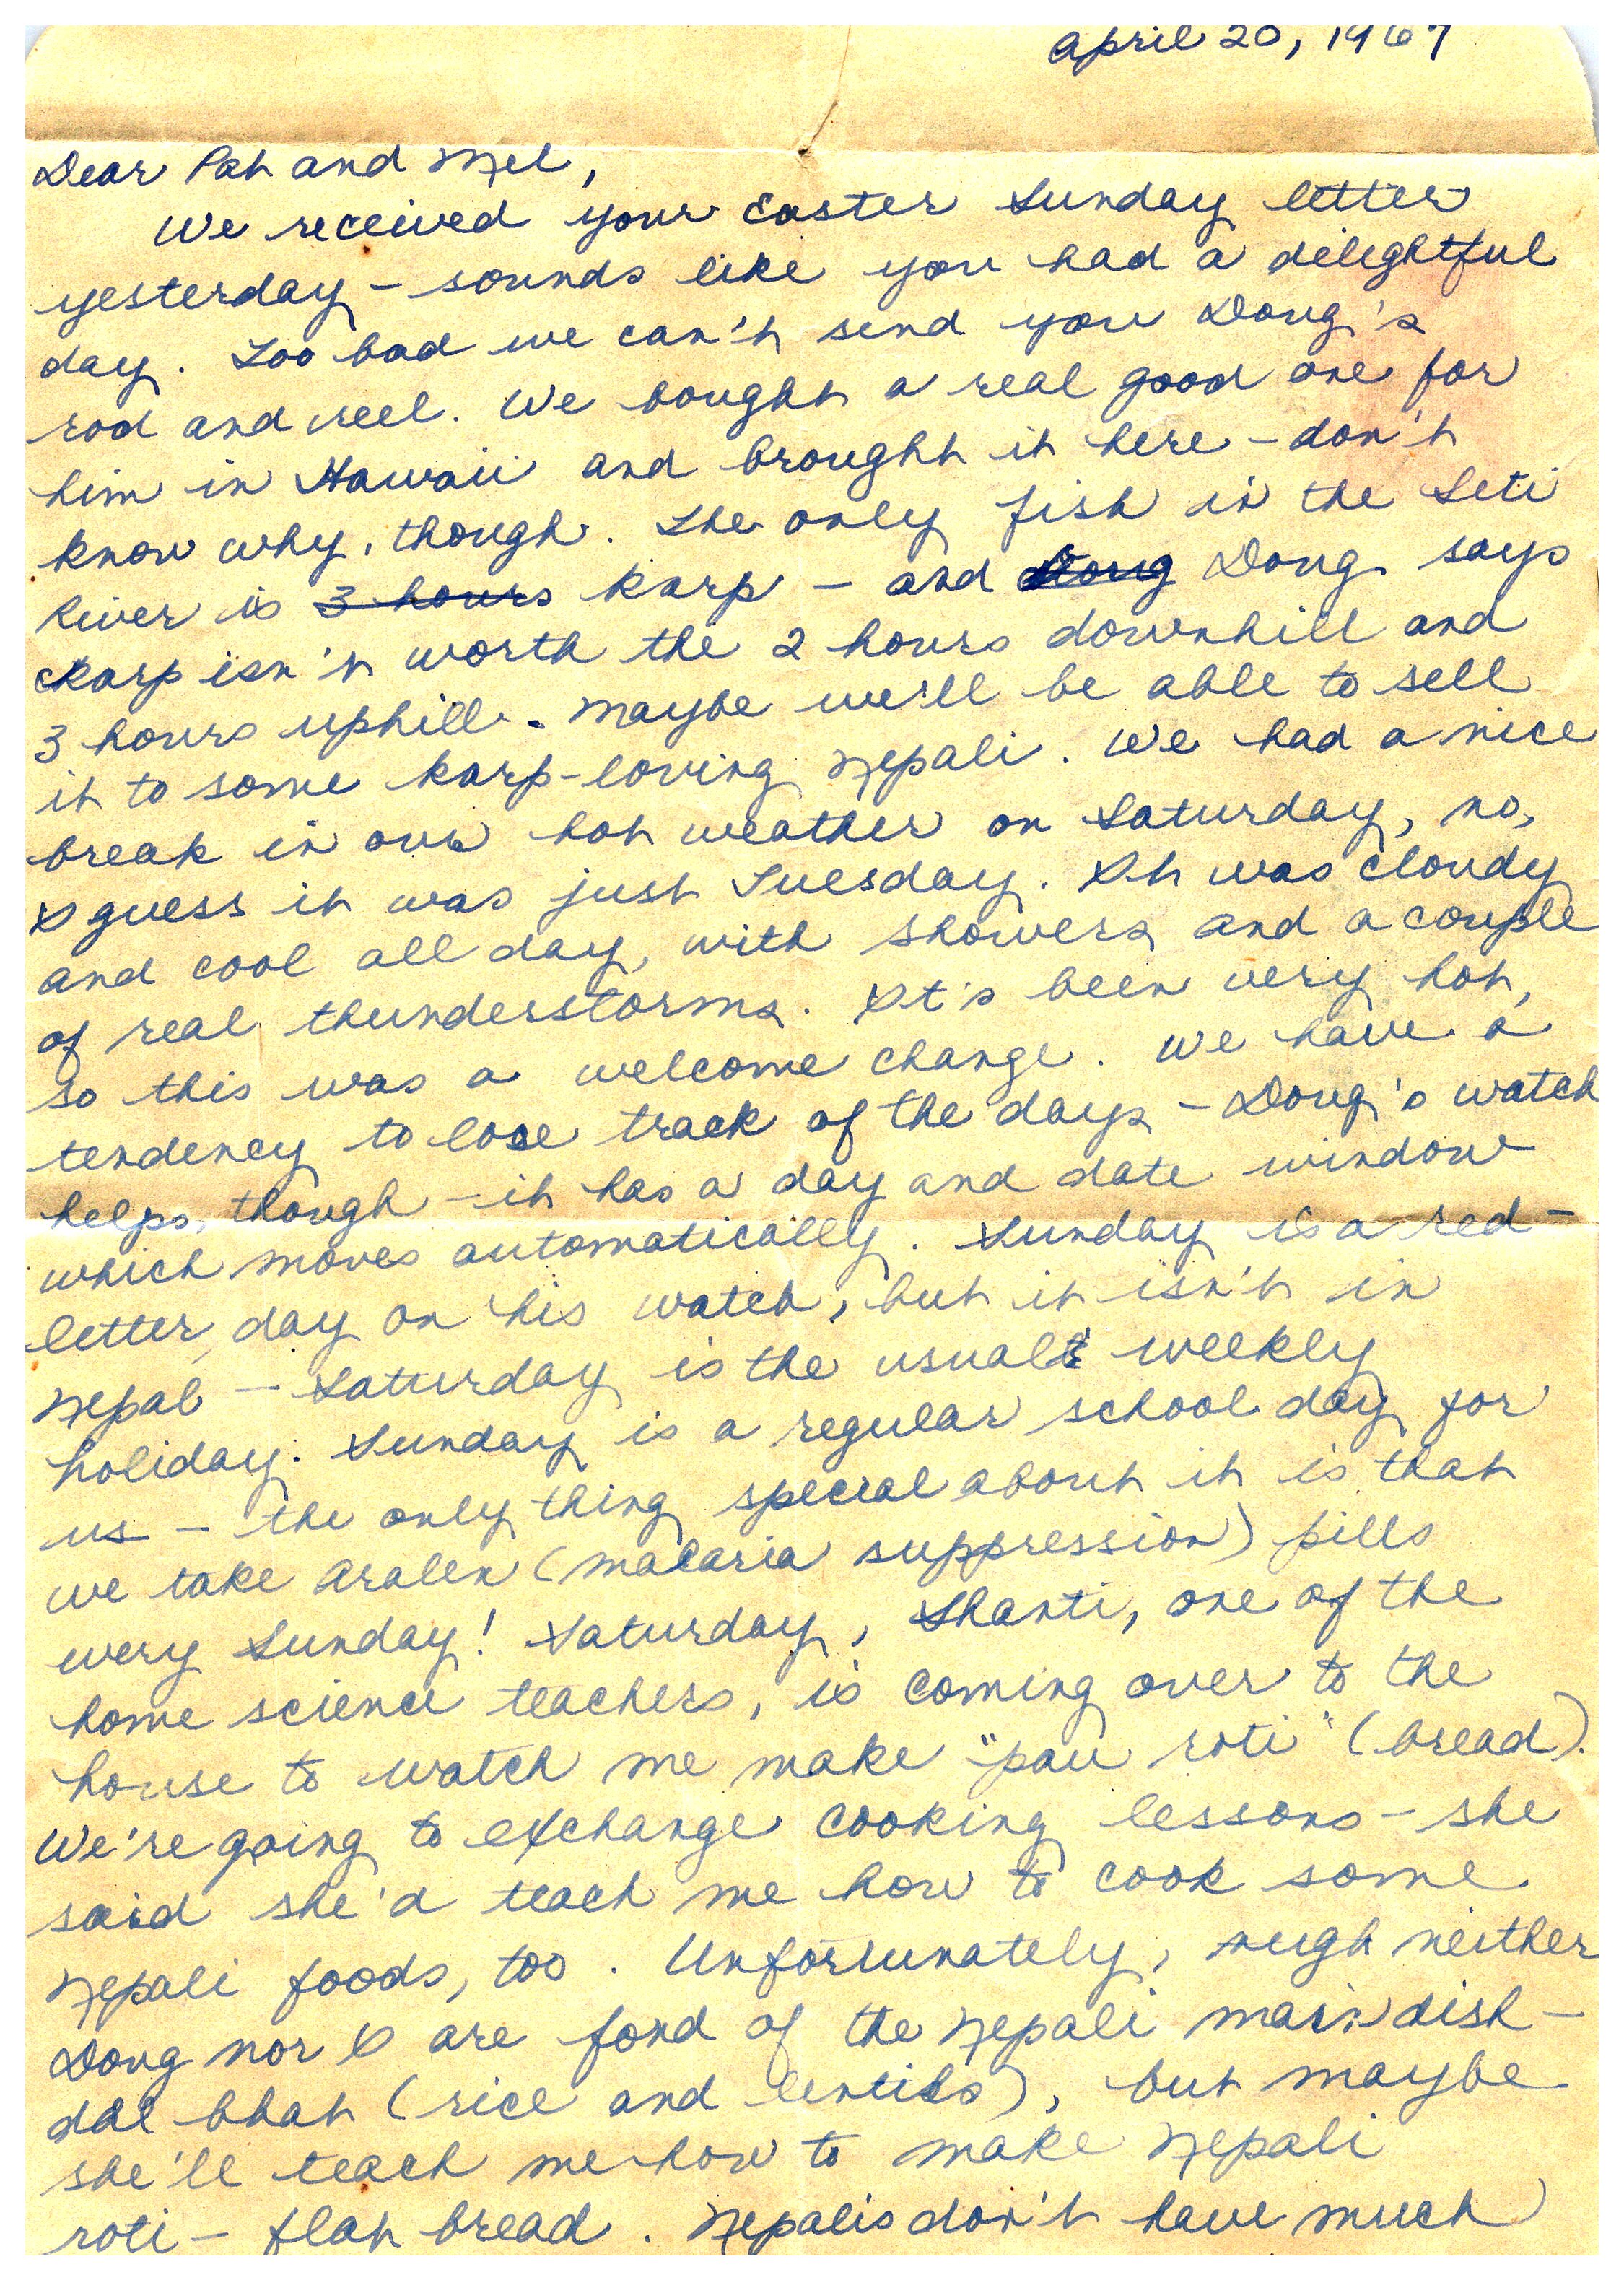 April 20, 1967
Dear Pat and Mel,
We received your Easter Sunday letter
yesterday – sounds like you had a delightful
day. Too bad we can't send you Doug's
rod and reel. We bought a real good one for
him in Hawaii and brought it here – don't
know why, though. The only fish in the Seti
River is 3 hours karp – and Doug Doug says
karp isn't worth the 2 hours downhill and
3 hours uphill. Maybe we'll be able to sell
it to some karp-loving Nepali. We had a nice
break in our hot weather on Saturday, no,
I guess it was just Tuesday. It was cloudy
and cool all day, with showers and a couple
of real thunderstorms. It's been very hot,
so this was a welcome change. We have a
tendency to lose track of the days – Doug's watch
helps, though – it has a day and date window
which moves automatically. Sunday is a red-
letter day on his watch, but it isn't in
Nepal – Saturday is the usual weekly
holiday. Sunday is a regular school day for
us – the only thing special about it is that
we take Aralen (malaria suppression) pills
every Sunday! Saturday, Shanti, one of the
home science teachers, is coming over to the
house to watch me make "pau roti" (bread).
We're going to exchange cooking lessons – she
said she'd teach me how to cook some
Nepali foods, too. Unfortunately, neither
Doug nor I are fond of the Nepali main dish –
dal bhat (rice and lentils), but maybe
she'll teach me how to make Nepali
roti – flat bread. Nepalis don't have much